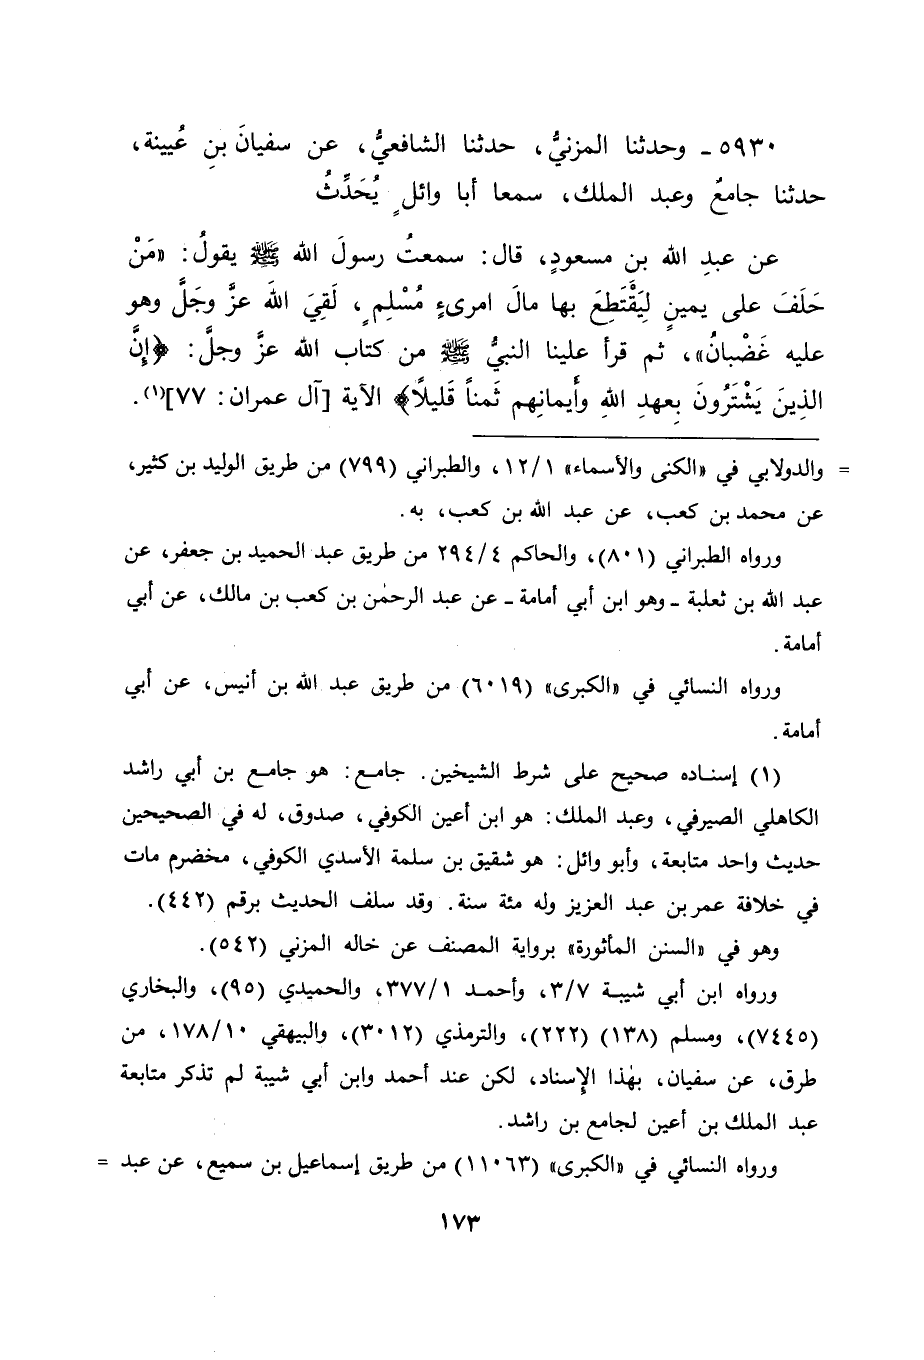 ٥٩٣٠ ـ وحدثنا المزنيُّ، حدثنا الشافعيُّ، عن سفيانَ بنِ عُيينة،
حدثنا جامعٌ وعبد الملك، سمعا أبا وائلٍ يُحَدِّثُ
عن عبدِ الله بن مسعودٍ، قال: سمعتُ رسولَ الله ﷺ يقولُ: «مَنْ
حَلَفَ على يمينٍ لِيَقْتَطِعَ بها مالَ امرىءٍ مُسْلِمٍ، لَقِيَ اللهَ عزَّ وجَلَّ وهو
عليه غَضْبانُ»، ثم قرأ علينا النبيُّ ﷺ من كتاب الله عزَّ وجلَّ: ﴿إنَّ
الذِينَ يَشْتَرُونَ بِعهدِ اللهِ وأَيمانِهِم ثَمناً قَليلاً﴾ الآية [آل عمران: ٧٧](١).
= والدولابي في «الكنى والأسماء» ١٢/١، والطبراني (٧٩٩) من طريق الوليد بن كثير،
عن محمد بن كعب، عن عبد الله بن كعب، به.
ورواه الطبراني (٨٠١)، والحاكم ٢٩٤/٤ من طريق عبد الحميد بن جعفر، عن
عبد الله بن ثعلبة ـ وهو ابن أبي أمامة ـ عن عبد الرحمٰن بن كعب بن مالك، عن أبي
أمامة.
ورواه النسائي في «الكبرى» (٦٠١٩) من طريق عبد الله بن أنيس، عن أبي
أمامة.
(١) إسناده صحيح على شرط الشيخين. جامع: هو جامع بن أبي راشد
الكاهلي الصيرفي، وعبد الملك: هو ابن أعين الكوفي، صدوق، له في الصحيحين
حديث واحد متابعة، وأبو وائل: هو شقيق بن سلمة الأسدي الكوفي، مخضرم مات
في خلافة عمر بن عبد العزيز وله مئة سنة. وقد سلف الحديث برقم (٤٤٢).
وهو في «السنن المأثورة» برواية المصنف عن خاله المزني (٥٤٢).
ورواه ابن أبي شيبة ٣/٧، وأحمد ٣٧٧/١، والحميدي (٩٥)، والبخاري
(٧٤٤٥)، ومسلم (١٣٨) (٢٢٢)، والترمذي (٣٠١٢)، والبيهقي ١٧٨/١٠، من
طرق، عن سفيان، بهٰذا الإسناد، لكن عند أحمد وابن أبي شيبة لم تذكر متابعة
عبد الملك بن أعين لجامع بن راشد.
ورواه النسائي في «الكبرى» (١١٠٦٣) من طريق إسماعيل بن سميع، عن عبد =
١٧٣